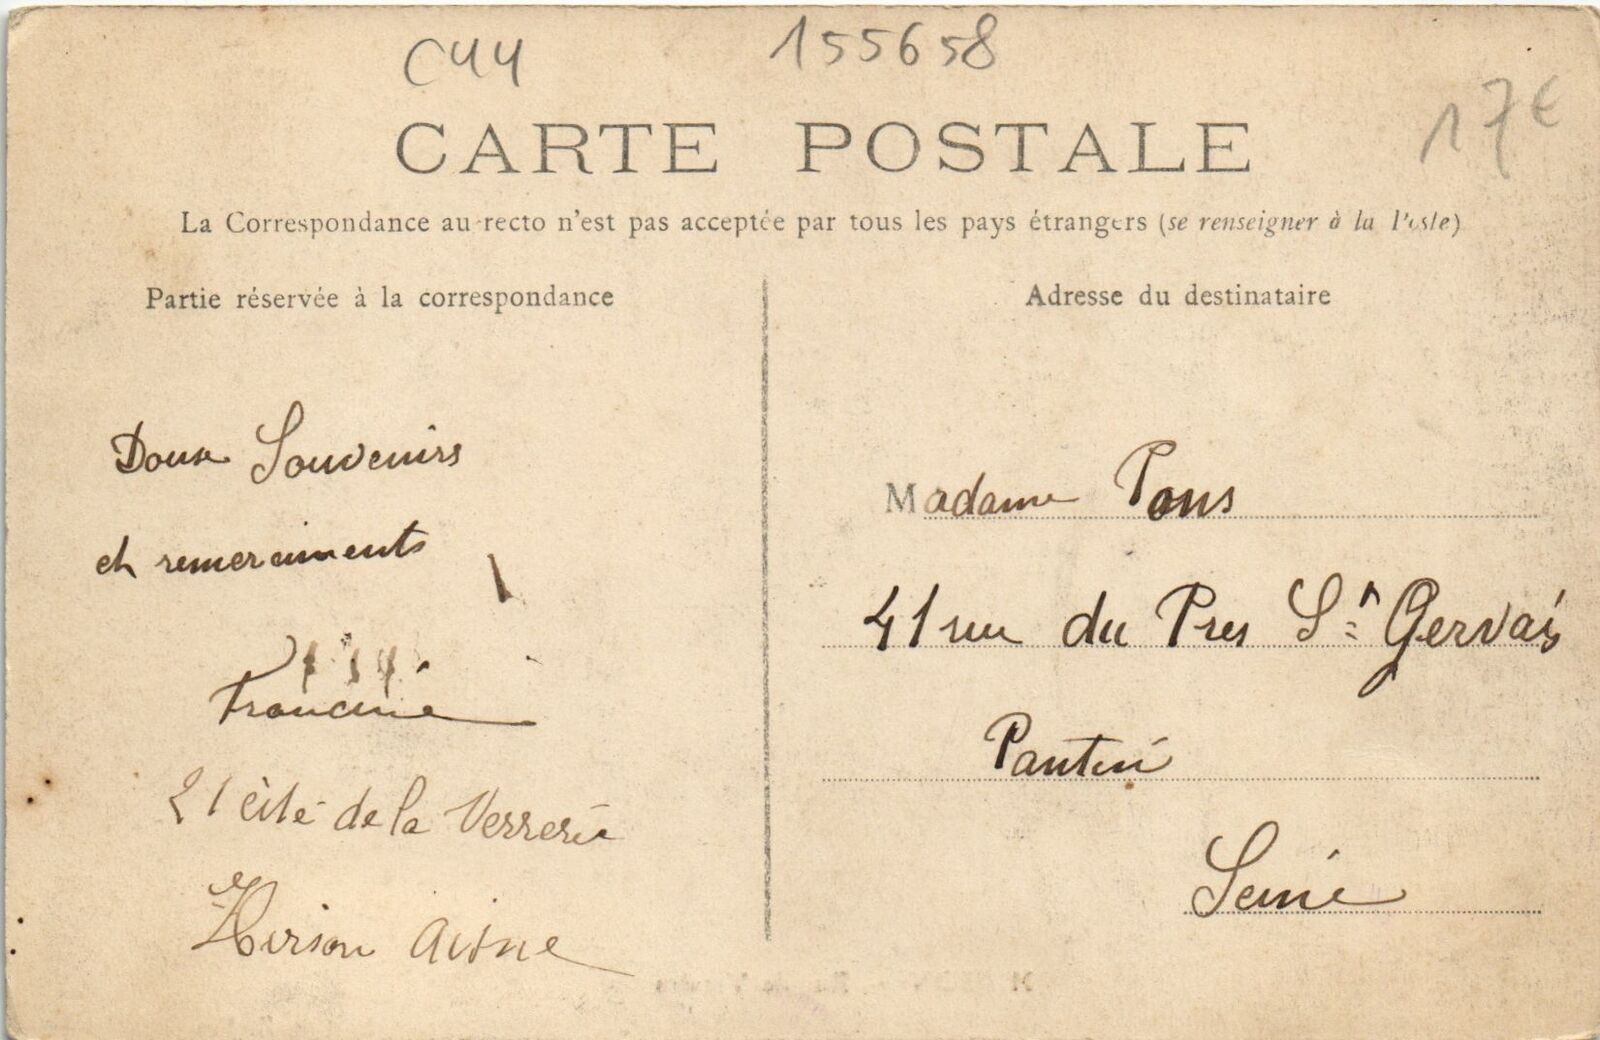 C44 155658
17€
CARTE POSTALE
La Correspondance au recto n'est pas acceptée par tous les pays étrangers (se renseigner à la Poste)
Partie réservée à la correspondance
Doux Souvenirs
et remerciments
Francine
21 cité de la Verrerie
Hirson Aisne
Adresse du destinataire
Madame Pons
41 rue du Pres St Gervais
Pantin
Seine